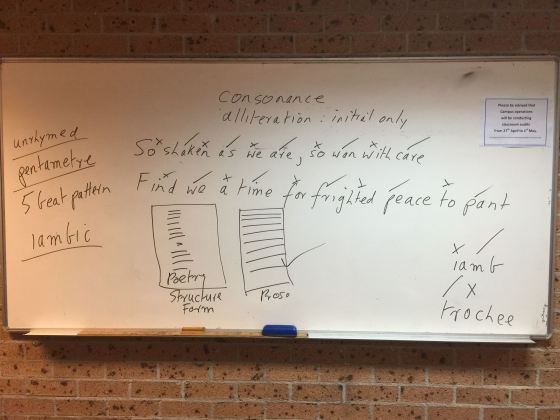 Consonance
alliteration : initial only
unrhymed
pentametre
5 beat pattern
iambic
So shaken as we are, so wan with care
Find we a time for frighted peace to pant
Poetry
Structure
Form
Prose
x /
iamb
/ x
trochee
Please be advised that
Campus operations
will be conducting
classroom audits
from 27th April to 1st May.